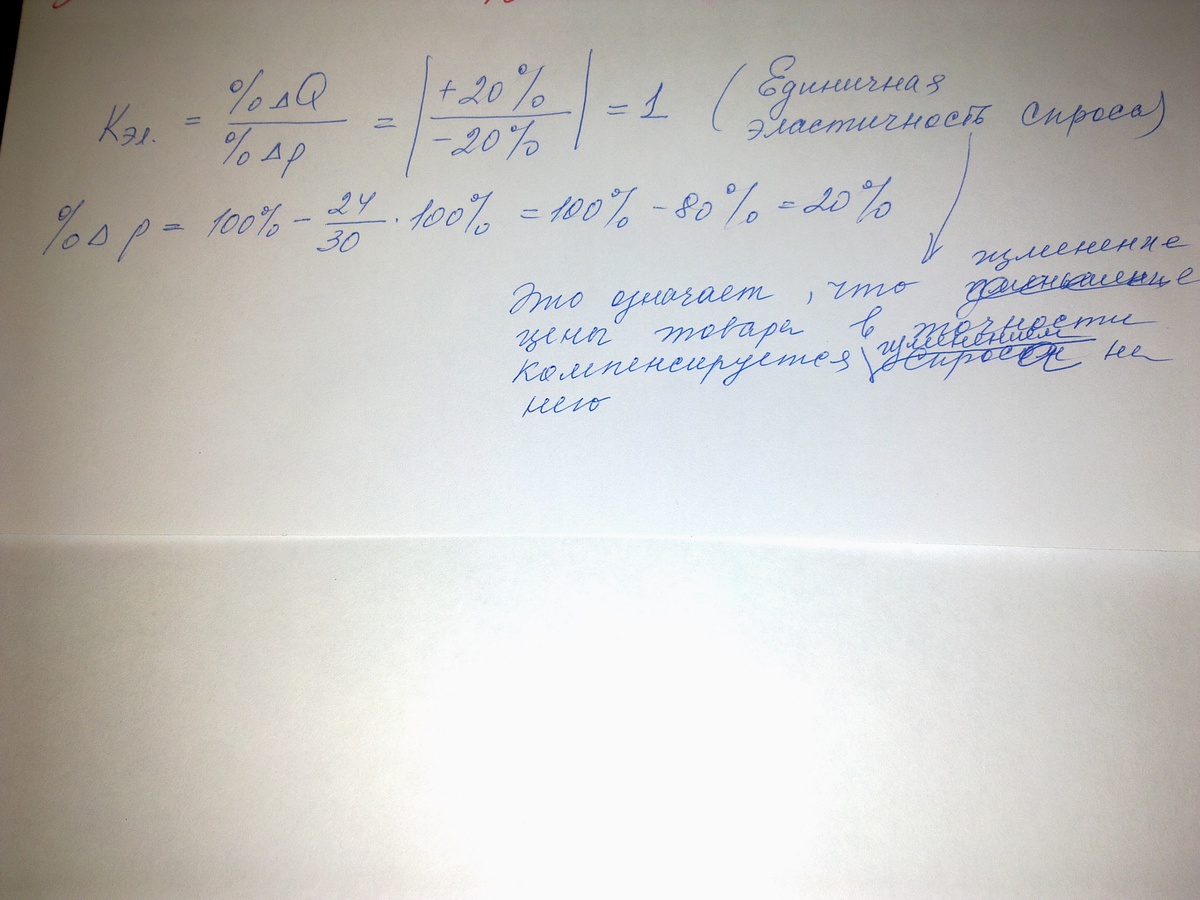 Kэл. = %ΔQ / %Δp = | +20% / -20% | = 1 (Единичная эластичность спроса)
%Δp = 100% - 24/30 · 100% = 100% - 80% = 20%
Это означает, что изменение
цены товара в точности
компенсируется изменением спроса на
него